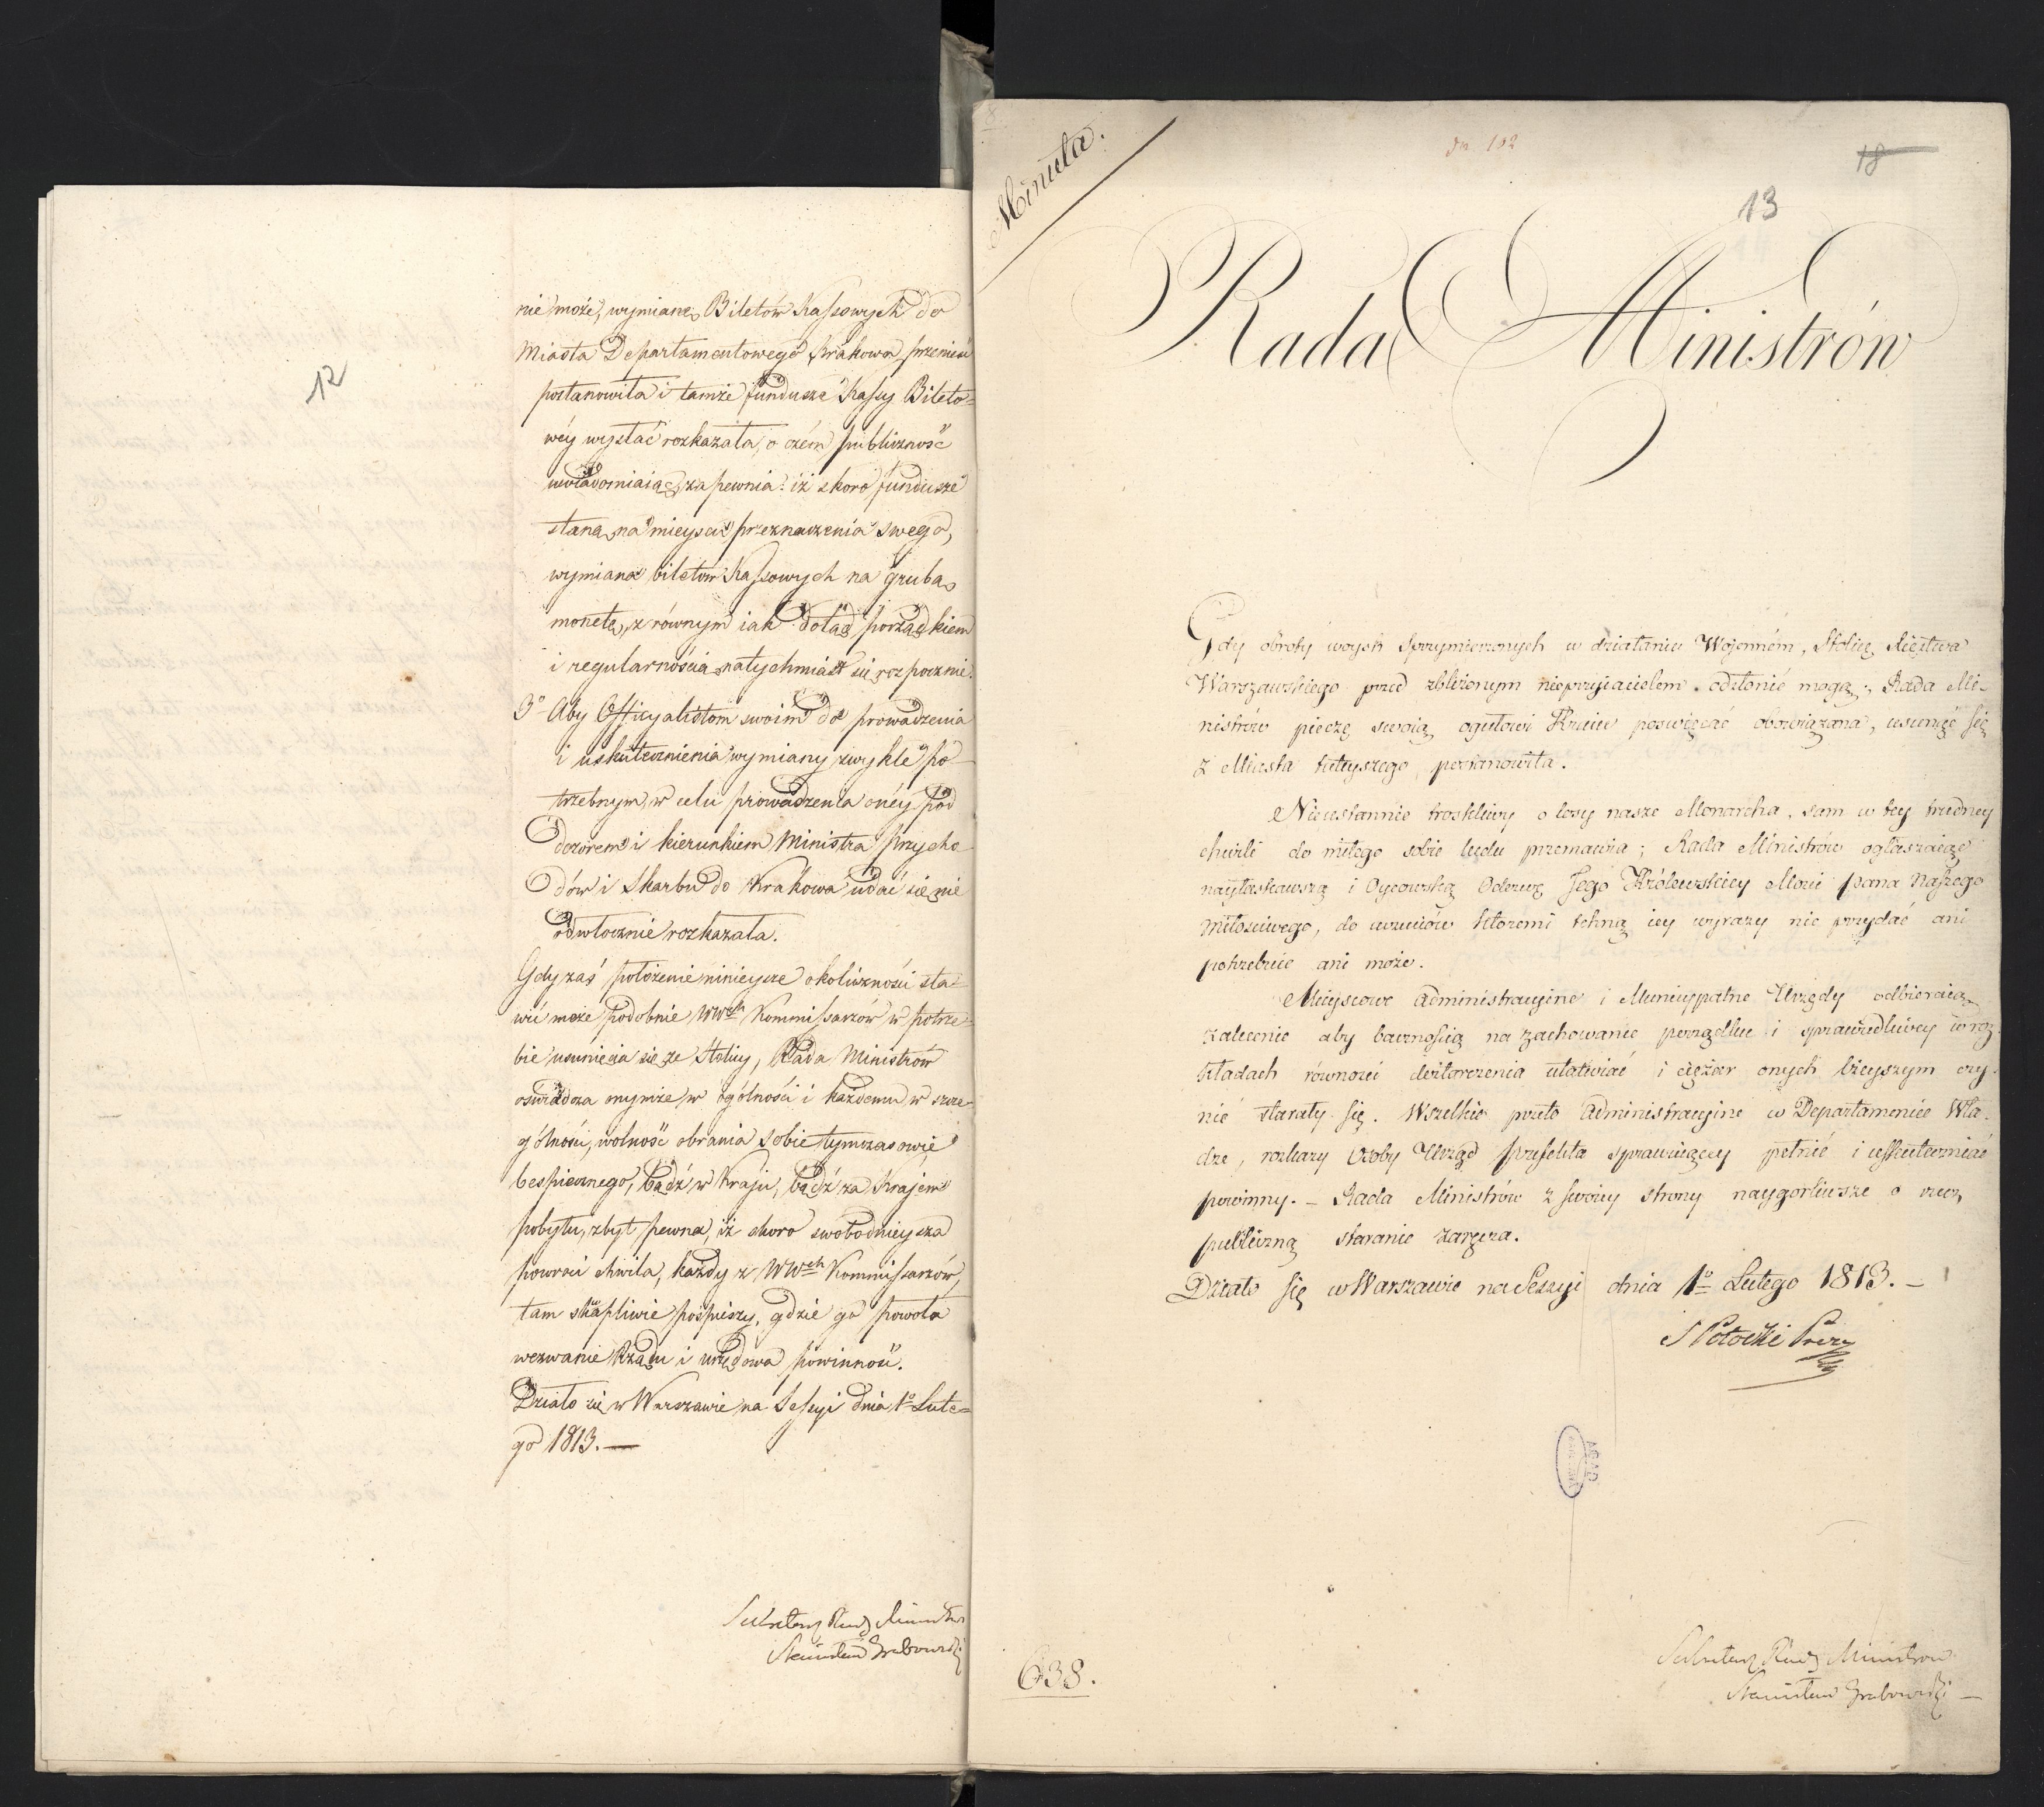 12
nie może, wymianę Biletów Kassowych do
Miasta Departamentowego Krakowa przenieść
postanowiła i tamże fundusze Kassy Bileto=
wéy wysłać rozkazała, o czém publiczność
uwiadomiaiąc, zapewnia: iż skoro fundusze
staną na mieyscu przeznaczenia swego,
wymiana biletów Kassowych na grubą
monetę, z równym iak dotąd porządkiem
i regularnością natychmiast się rozpocznie.
3o Aby Officyalistom swoim do prowadzenia
i uskutecznienia wymiany zwykle po-
trzebnym, w celu prowadzenia onéy pod
dozorem i kierunkiem Ministra Przycho
dów i Skarbu do Krakowa udać się nie
odwłocznie rozkazała.
Gdy zaś położenie ninieysze okoliczności sta-
wić może podobnie WWch Kommissarzów w potrze-
bie usunięcia się ze Stolicy, Rada Ministrów
oświadcza onymże w ogólności i każdemu w szcze-
gólności, wolność obrania sobie tymczasowie
bespiecznego, bądź w Kraju, bądź za Krajem
pobytu, zbyt pewna, iż skoro swobodnieysza
powróci chwila, każdy z WWch Kommissarzów,
tam skwapliwie pośpieszy, gdzie go powoła
wezwanie Rządu i urzędowa powinność.
Działo się w Warszawie na Sessyi dnia 1o Lute=
go 1813. —
Sekretarz Rady Ministrów
Stanisław Grabowski
Minuta.
do 102
18
13
Rada Ministrów
Gdy obroty woysk Sprzymierzonych w działaniu Wojenném, Stolicę Xięstwa
Warszawskiego przed zbliżonym nieprzyjacielem odsłonić mogą; Rada Mi-
nistrów pieczę swoią ogułowi Kraiu poswięcać obowiązana, usunąć się
z Miasta tuteyszego postanowiła.
Nieustannie troskliwy o losy nasze Monarcha, sam w tey trudney
chwili do miłego sobie ludu przemawia; Rada Ministrów ogłaszaiąc
nayłaskawszą i Oycowską Odezwę Jego Królewskiey Mości Pana Naszego
Miłościwego, do uczuciów któremi tchną iey wyrazy nic przydać ani
potrzebuie ani może.
Mieyscowe Administracyine i Municypalne Urzędy odbieraią
zalecenie aby bacznością na zachowanie porządku i sprawiedliwey w roz-
kładach równości dostarczenia ułatwiać i ciężar onych lżeyszym czy-
nić starały się. Wszelkie przeto Administracyine w Departamencie Wła-
dze, rozkazy Osoby Urząd Prefekta sprawuiącey pełnić i uskuteczniać
powinny. – Rada Ministrów z swoiey strony naygorliwsze o rzecz
publiczną staranie zaręcza.
Działo się w Warszawie na Sessyi dnia 1o Lutego 1813. –
S Potocki Prezes
AGAD
638.
Sekretarz Rady Ministrów
Stanisław Grabowski –